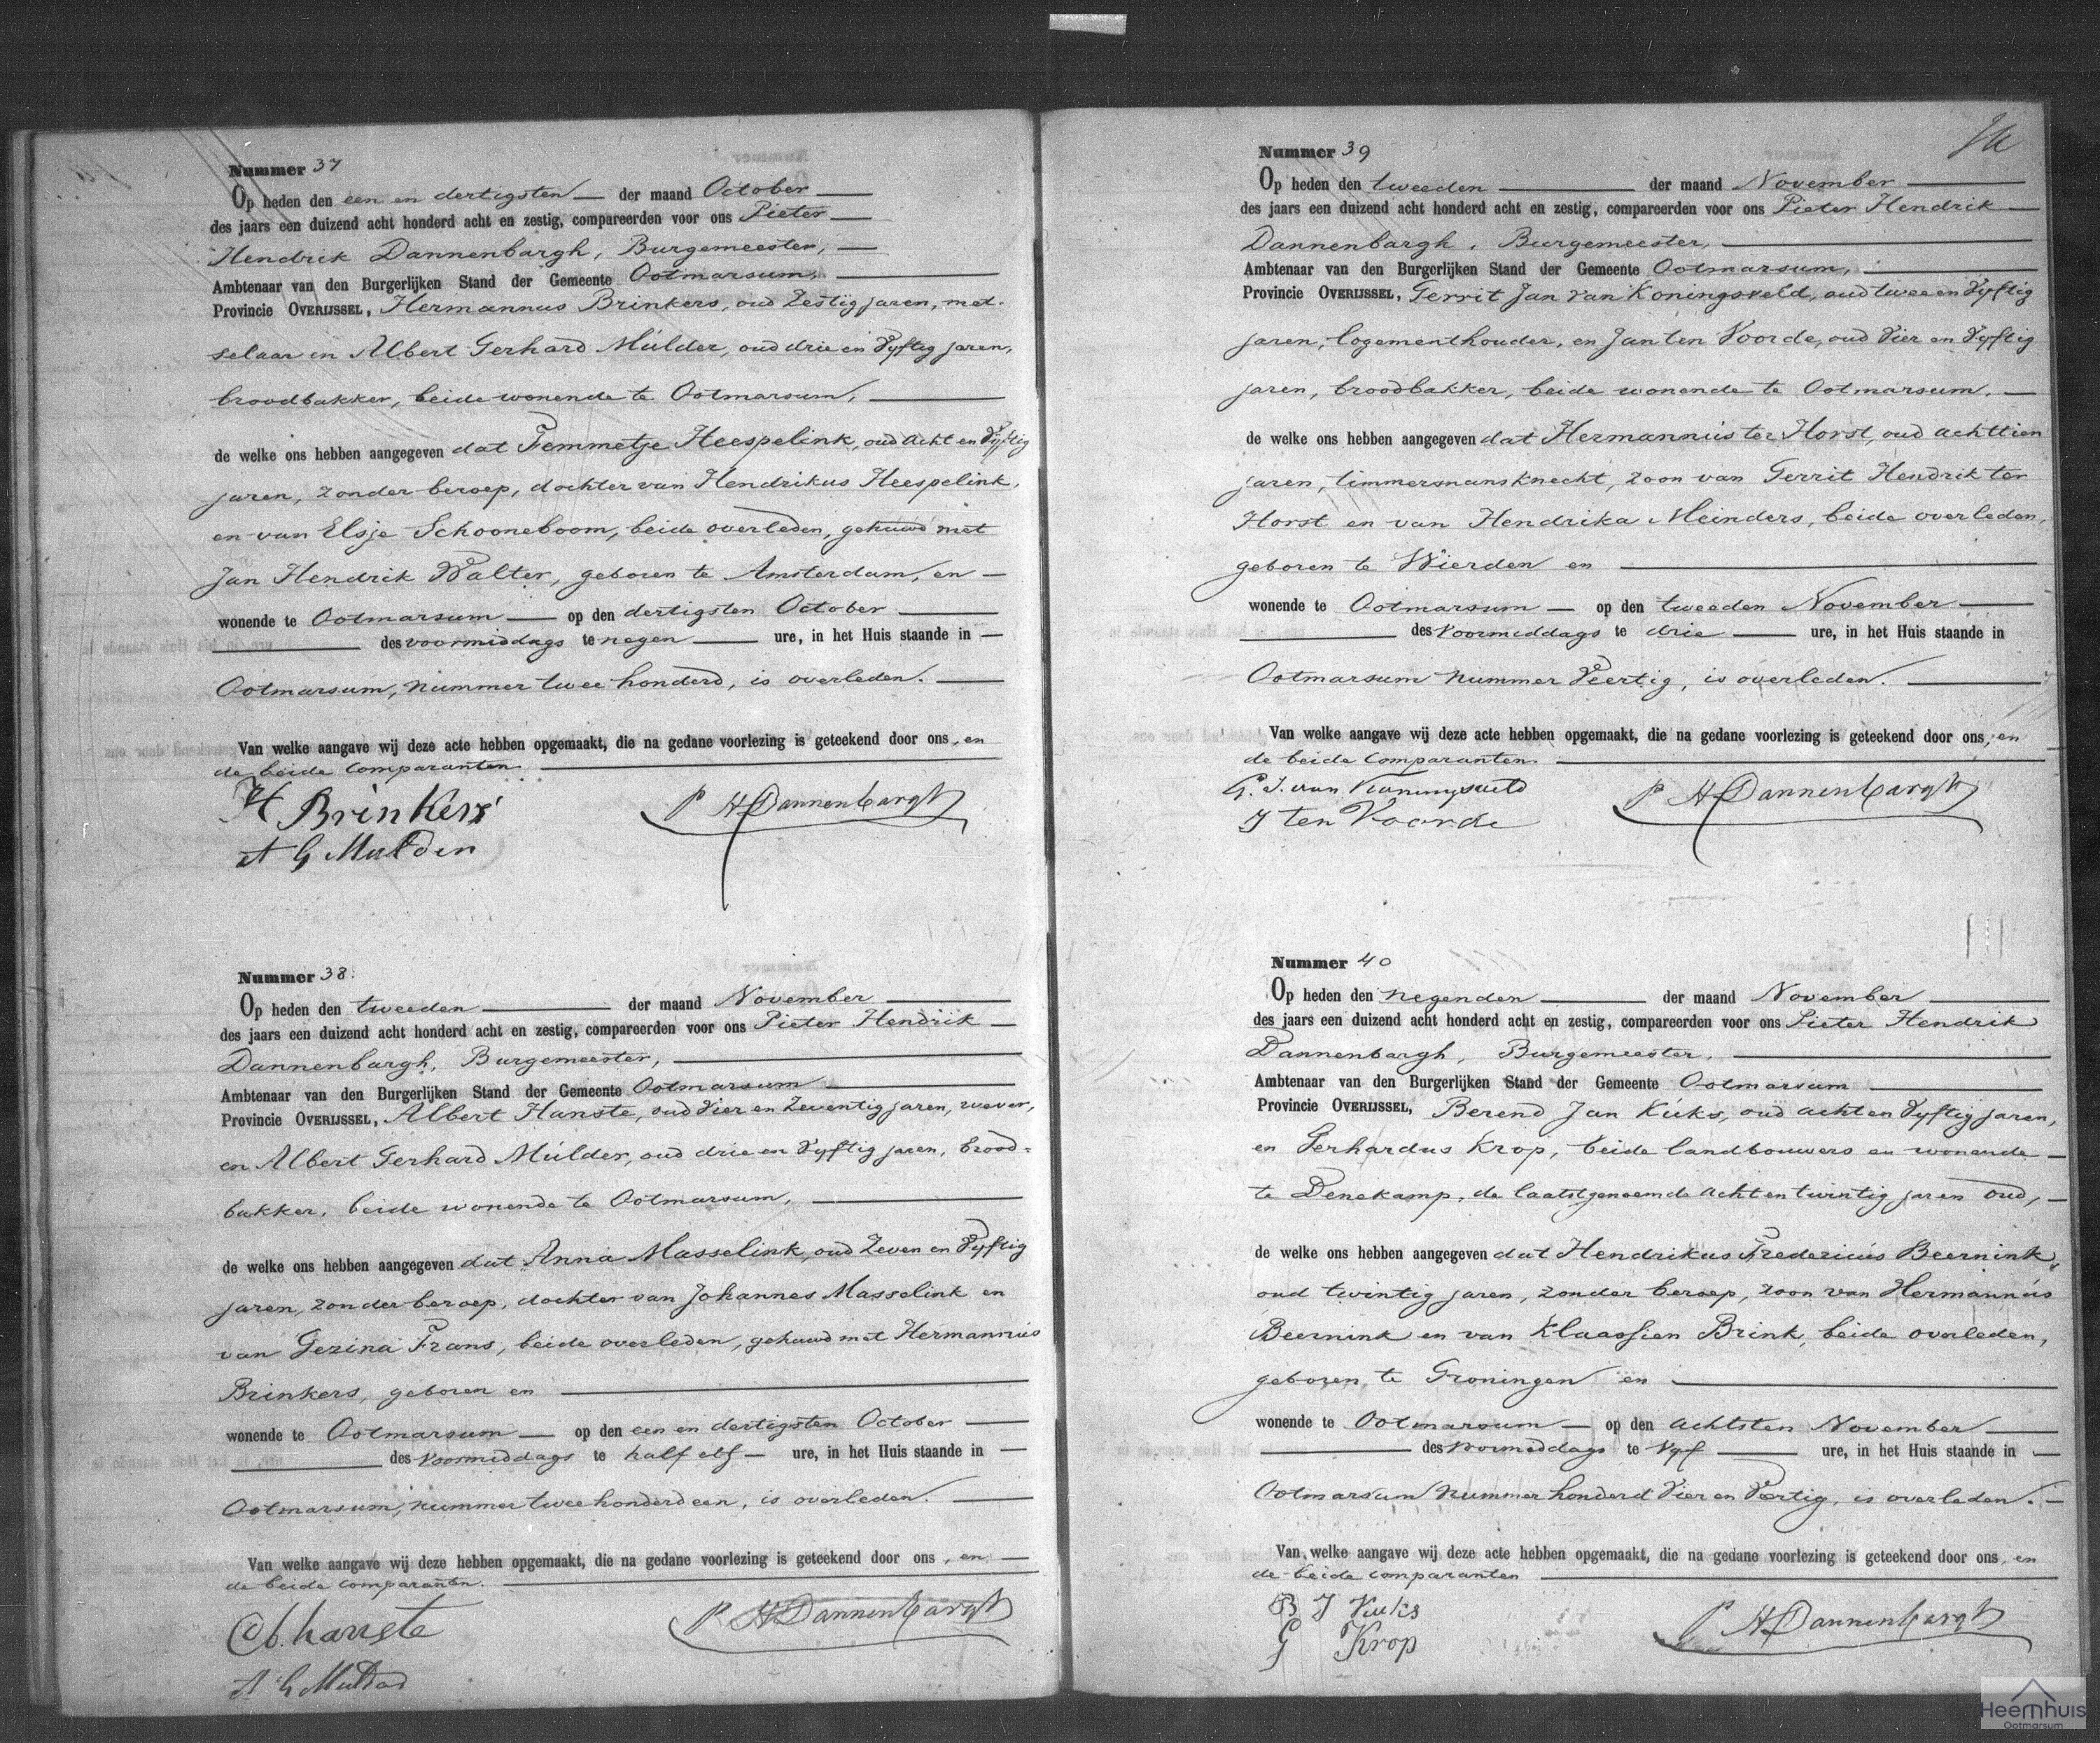 Nummer 37
Op heden den een en dertigsten der maand October
des jaars een duizend acht honderd acht en zestig, compareerden voor ons Pieter
Hendrik Dannenbargh, Burgemeester,
Ambtenaar van den Burgerlijken Stand der Gemeente Ootmarsum,
Provincie OVERIJSSEL, Hermannus Brinkers, oud Zestig jaren, met-
selaar en Albert Gerhard Mulder, oud drie en Vyftig jaren,
broodbakker, beide wonende te Ootmarsum,
de welke ons hebben aangegeven dat Femmetje Heespelink, oud acht en Vyftig
jaren, zonder beroep, dochter van Hendrikus Heespelink,
en van Elsje Schooneboom, beide overleden, gehuwd met
Jan Hendrik Walter, geboren te Amsterdam, en
wonende te Ootmarsum op den dertigsten October
des voormiddags te negen ure, in het Huis staande in
Ootmarsum, nummer twee honderd, is overleden.
Van welke aangave wij deze acte hebben opgemaakt, die na gedane voorlezing is geteekend door ons, en
de beide comparanten.
H Brinkers
P H Dannenbargh
A G Mulder
Nummer 38.
Op heden den tweeden der maand November
des jaars een duizend acht honderd acht en zestig, compareerden voor ons Pieter Hendrik
Dannenbargh, Burgemeester,
Ambtenaar van den Burgerlijken Stand der Gemeente Ootmarsum
Provincie OVERIJSSEL, Albert Hanste, oud Vier en Zeventig jaren, wever,
en Albert Gerhard Mulder, oud drie en Vyftig jaren, brood-
bakker, beide wonende te Ootmarsum,
de welke ons hebben aangegeven dat Anna Masselink, oud Zeven en Vyftig
jaren, zonder beroep, dochter van Johannes Masselink en
van Gezina Frans, beide overleden, gehuwd met Hermannus
Brinkers, geboren en
wonende te Ootmarsum op den een en dertigsten October
des voormiddags te half elf ure, in het Huis staande in
Ootmarsum, nummer twee honderd een, is overleden.
Van welke aangave wij deze hebben opgemaakt, die na gedane voorlezing is geteekend door ons, en
de beide comparanten.
Ab. hanste
P H Dannenbargh
A G Mulder
Nummer 39
Op heden den tweeden der maand November
des jaars een duizend acht honderd acht en zestig, compareerden voor ons Pieter Hendrik
Dannenbargh, Burgemeester,
Ambtenaar van den Burgerlijken Stand der Gemeente Ootmarsum,
Provincie OVERIJSSEL, Gerrit Jan van Koningsveld, oud twee en Vyftig
jaren, logementhouder, en Jan ten Voorde, oud Vier en Vyftig
jaren, broodbakker, beide wonende te Ootmarsum,
de welke ons hebben aangegeven dat Hermannus ter Horst, oud achttien
jaren, timmermansknecht, zoon van Gerrit Hendrik ter
Horst en van Hendrika Meinders, beide overleden,
geboren te Wierden en
wonende te Ootmarsum op den tweeden November
des Voormiddags te drie ure, in het Huis staande in
Ootmarsum nummer Veertig, is overleden.
Van welke aangave wij deze acte hebben opgemaakt, die na gedane voorlezing is geteekend door ons, en
de beide comparanten.
G. J. van Koningsveld
P H Dannenbargh
J ten Voorde
Nummer 40
Op heden den negenden der maand November
des jaars een duizend acht honderd acht en zestig, compareerden voor ons Pieter Hendrik
Dannenbargh, Burgemeester,
Ambtenaar van den Burgerlijken Stand der Gemeente Ootmarsum
Provincie OVERIJSSEL, Berend Jan Kuks, oud acht en Vyftig jaren,
en Gerhardus Krop, beide landbouwers en wonende
te Denekamp, de laatstgenoemde acht en twintig jaren oud,
de welke ons hebben aangegeven dat Hendrikus Fredericus Beernink,
oud twintig jaren, zonder beroep, zoon van Hermannus
Beernink en van Klaassien Brink, beide overleden,
geboren te Groningen en
wonende te Ootmarsum op den achtsten November
des voormiddags te Vyf ure, in het Huis staande in
Ootmarsum nummer honderd Vier en Veertig, is overleden.
Van welke aangave wij deze acte hebben opgemaakt, die na gedane voorlezing is geteekend door ons, en
de beide comparanten
B J Kuks
P H Dannenbargh
G Krop
Heemhuis
Ootmarsum